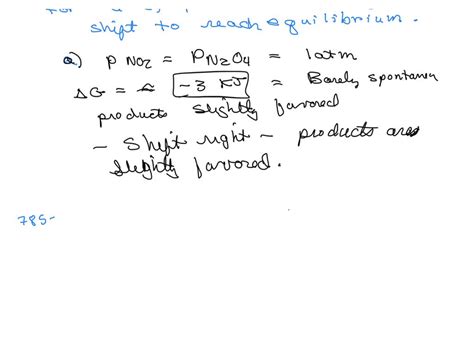 shift to reach equilibrium.
a) P NO2 = PN2O4 = 1atm
ΔG = ~ -3 KJ = Barely spontaneous
products slightly favored
- Shift right - products are
slightly favored.
785-